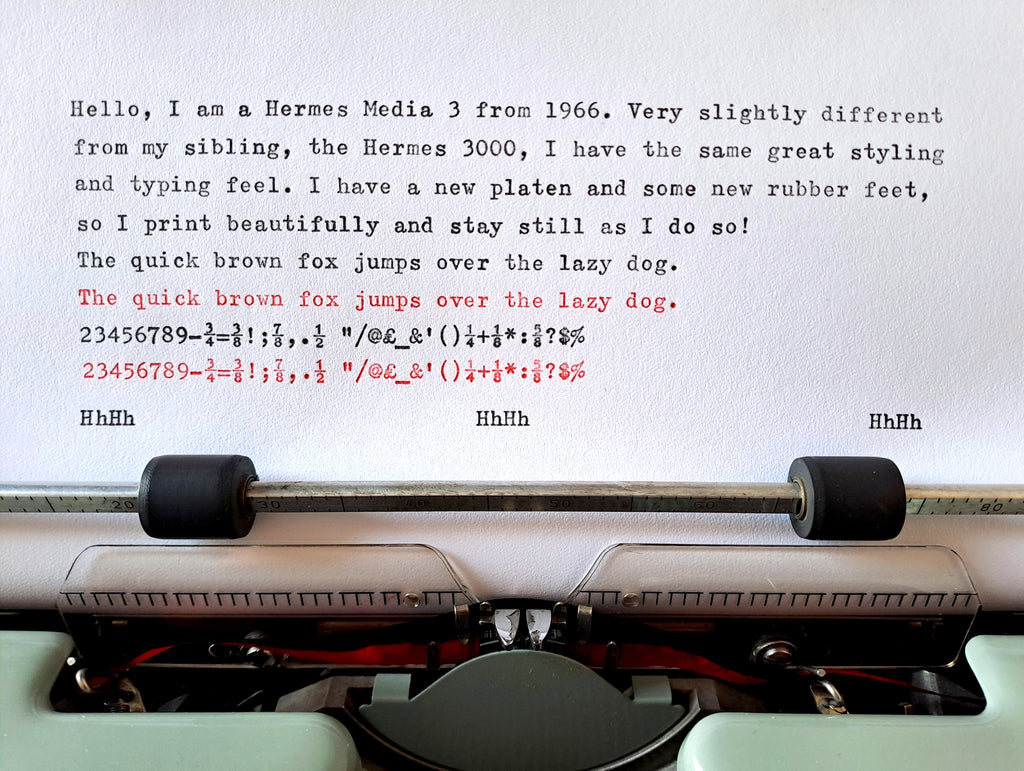 Hello, I am a Hermes Media 3 from 1966. Very slightly different
from my sibling, the Hermes 3000, I have the same great styling
and typing feel. I have a new platen and some new rubber feet,
so I print beautifully and stay still as I do so!
The quick brown fox jumps over the lazy dog.
The quick brown fox jumps over the lazy dog.
23456789-¾=⅜!;⅞,.½ "/@£_&'()¼+⅛*:⅝?$%
23456789-¾=⅜!;⅞,.½ "/@£_&'()¼+⅛*:⅝?$%
HhHh HhHh HhHh
20 30 40 50 60 80